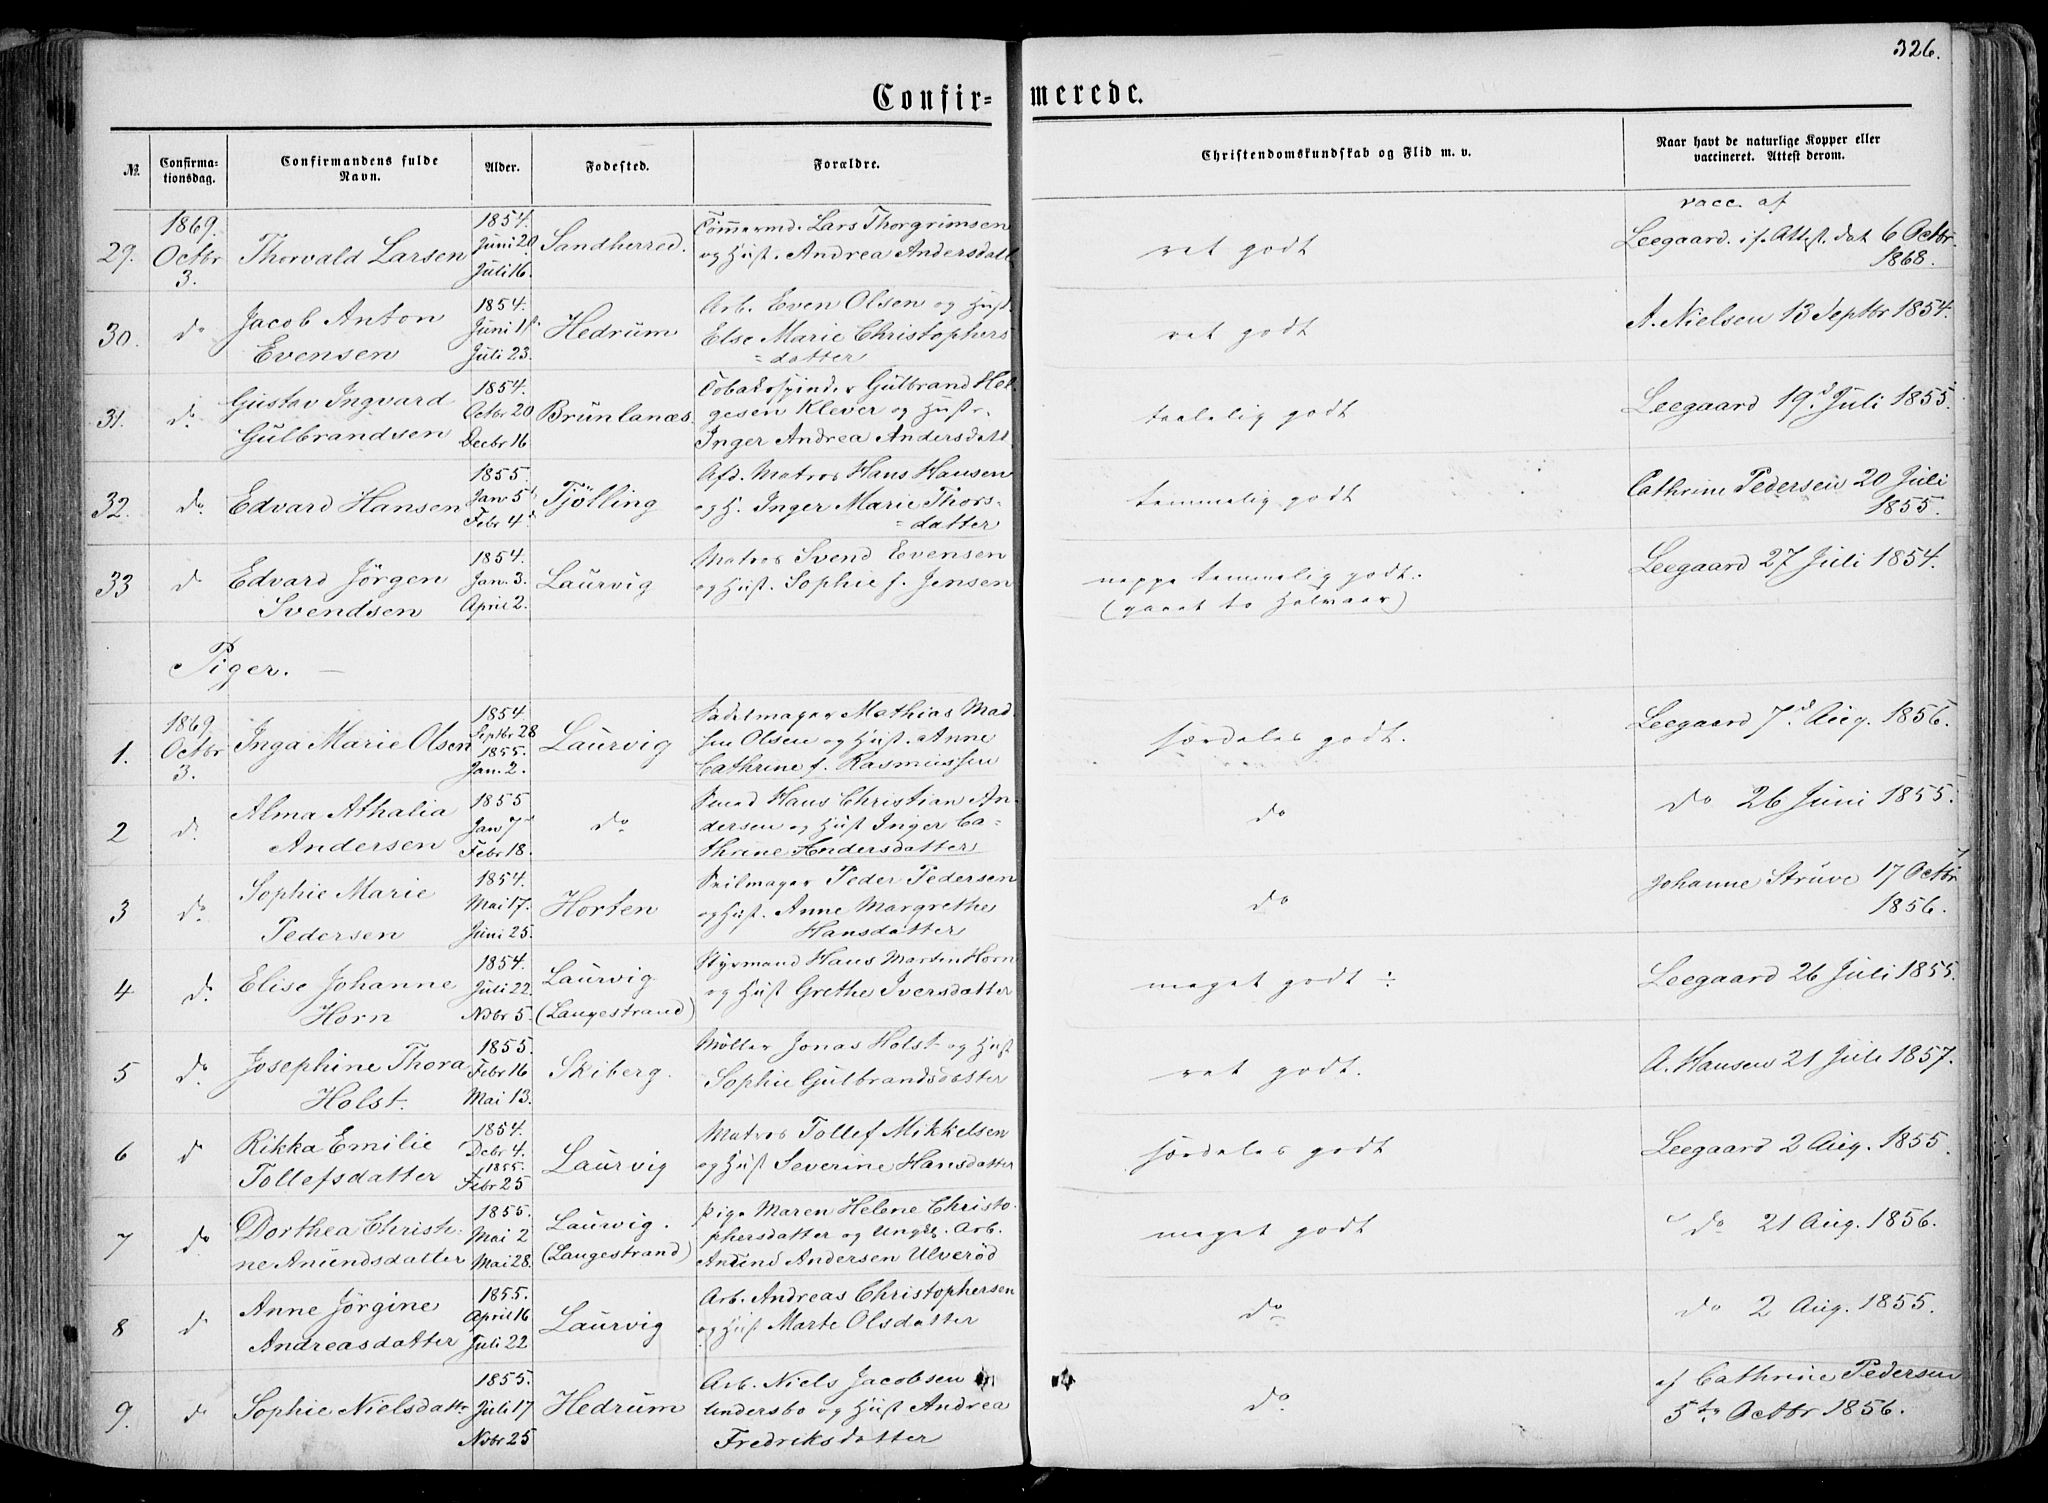 326.
Confirmerede.
№ Confirmationsdag. Confirmandens fulde Navn. Alder. Fødested. Forældre. Christendomskundskab og Flid m. v. Naar havt de naturlige Kopper eller vaccineret. Attest derom.
1869. 1854. Tömmermd. Lars Thorgrimsen vacc. af
29. Octbr Thorvald Larsen Juni 20 Sandherred. og Hust. Andrea Andersdatt. ret godt Leegaard. if. Attest. dat 6 Octbr
3. Juli 16. 1868.
Jacob Anton 1854. Arb. Even Olsen og Hust.
30. do Juni 1 Hedrum Else Marie Christophers ret godt A. Nielsen 13 Septbr 1854.
Evensen Juli 23. =datter
Gustav Ingvard 1854. Tobaksspinder Gulbrand Hel-
31. do Octbr 20 Brunlanæs. gesen Klever og Hustr. taalelig godt Leegaard 19d. Juli 1855.
Gulbrandsen Decbr 16 Inger Andrea Andersdatt.
1855. Afd. Matros Hans Hansen
32. do. Edvard Hansen Jan 5 Tjölling og H. Inger Marie Thors= temmelig godt Cathrine Pedersen 20 Juli
Febr 4 =datter 1855.
1854. Matros Svend Evensen
33 do Edvard Jörgen Jan. 3. Laurvig og Hust. Sophie f. Jensen neppe temmelig godt. Leegaard 27 Juli 1854.
Svendsen April 2. (gaaet to Halvaar)
Piger. —
1869. 1854. Sadelmager Mathias Mad-
1. Octbr Inga Marie Olsen Septbr 28 Laurvig sen Olsen og Hust. Anne særdeles godt. Leegaard 7d. Aug. 1856.
3. 1855. Jan. 2. Cathrine f. Rasmussen
Alma Athalia 1855 Smed Hans Christian An-
2 do Jan 7 do dersen og Hust Inger Ca= do do 26 Juni 1855.
Andersen Febr 18. thrine Andersdatter
Sophie Marie 1854. Seilmager Peder Pedersen
3 do. Mai 17. Horten og Hust. Anne Margrethe do Johanne Struve 17 Octbr
Pedersen Juni 25. Hansdatter 1856.
1854. Styrmand Hans Morten Horn
4 do. Elise Johanne Juli 22. Laurvig og Hust Grethe Iversdatter meget godt ÷ Leegaard 26 Juli 1855.
Horn Nvbr 5. (Langestrand)
1855. Möller Jonas Holst og Hust
5 do. Josephine Thora Febr 16 Skiberg. Sophie Gulbrandsdatter ret godt. A. Hansen 21 Juli 1857.
Holst. Mai 13.
1854. Matros Tollef Mikkelsen
6 do Rikka Emilie Debr 4. Laurvig og Hust Severine Hansdatter særdeles godt Leegaard 2 Aug. 1855.
Tollefsdatter 1855. Febr 25
1855. Pige Maren Helene Christo-
7 do Dorthea Christi- Mai 2 Laurvig. phersdatter og Ungk. Arb. meget godt do 21 Aug. 1856.
ne Anundsdatter Mai 28. (Langestrand) Anund Andersen Ulveröd
1855. Arb. Andreas Christophersen
8 do Anne Jörgine April 16 Laurvig og Hust Marte Olsdatter do do 2 Aug. 1855.
Andreasdatter Juli 22
1855. Arb. Niels Jacobsen
9. do Sophie Nielsdattr Juli 17 Hedrum Undersbo og Hust Andrea do. af Cathrine Pedersen
Nvbr 25 Fredriksdatter 5te Octbr 1856.